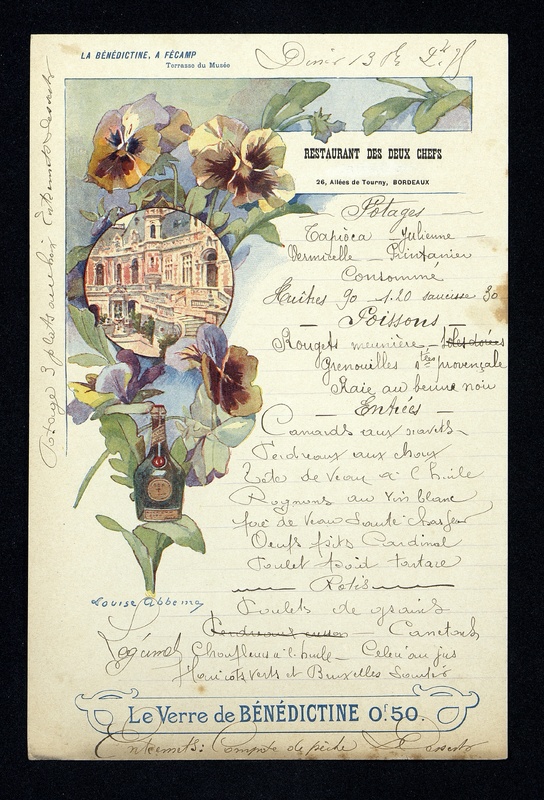 LA BÉNÉDICTINE, A FÉCAMP
Terrasse du Musée
Diner 13 8bre
RESTAURANT DES DEUX CHEFS
26, Allées de Tourny, BORDEAUX
Potage 3 plats au choix Entremets Desserts
Potages
Tapioca Julienne
Vermicelle Printanier
Consommé
Huîtres 90 1.20 saucisse 30
Poissons
Rougets meunière soles dorées
Grenouilles stées provençale
Raie au beurre noir
Entrées
Canards aux navets
Perdreaux aux choux
Tête de Veau à l'huile
Rognons au Vin blanc
foie de Veau Sauté chasseur
Oeufs frits Cardinal
Poulet froid tartare
Rotis
Poulets de grains
Perdreaux Canetons
Légumes Choufleurs à l'huile Céleri au jus
Haricots verts et Bruxelles Sautés
Louise Abbema
Le Verre de BÉNÉDICTINE 0f.50.
Entremets: Compote de pêche Desserts